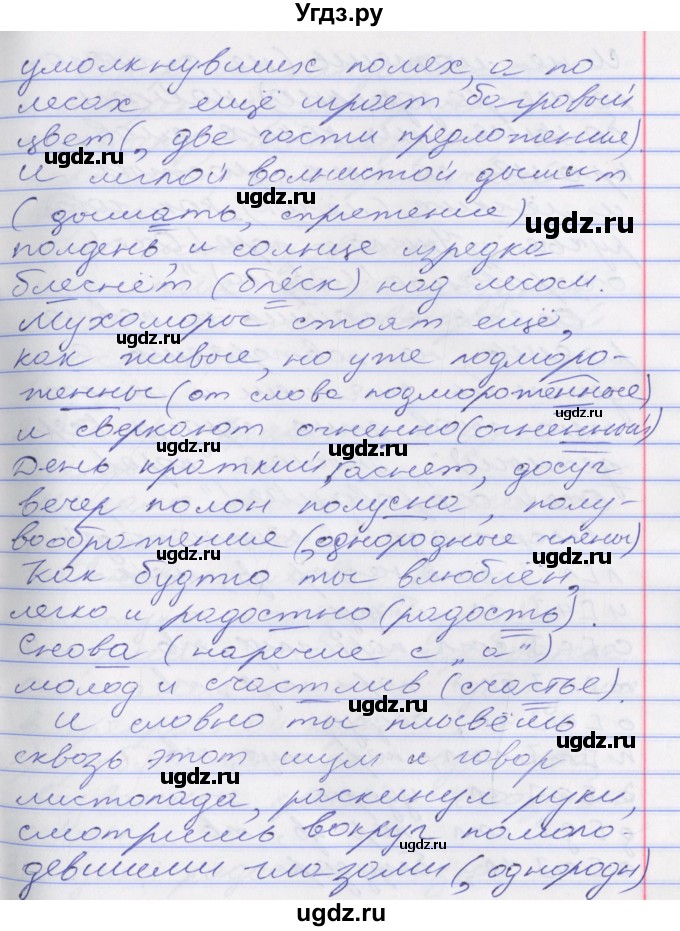 Угдз.ру
умолкнувших полях, а по
лесах ещё играет багровый
цвет (, две части предложения).
И мглой волнистой дымит
(дымать, спряжение)
полдень, и солнце изредка
блеснёт (блеск) над лесом.
Мухоморы стоят ещё,
как живые, но уже подморо-
женны (от слова подмороженные)
и сверкают огненно (огненный)
День краткий гаснет, досуг
вечер полон полусна, полу-
воображение (, однородные члены)
Как будто ты влюблён,
легко и радостно (радость).
Снова (наречие с „а")
молод и счастлив (счастье).
И словно ты плывёшь
сквозь этот шум и говор
листопада, раскинул руки,
смотришь вокруг помоло-
девшими глазами (, однородн)
ugdz.ru